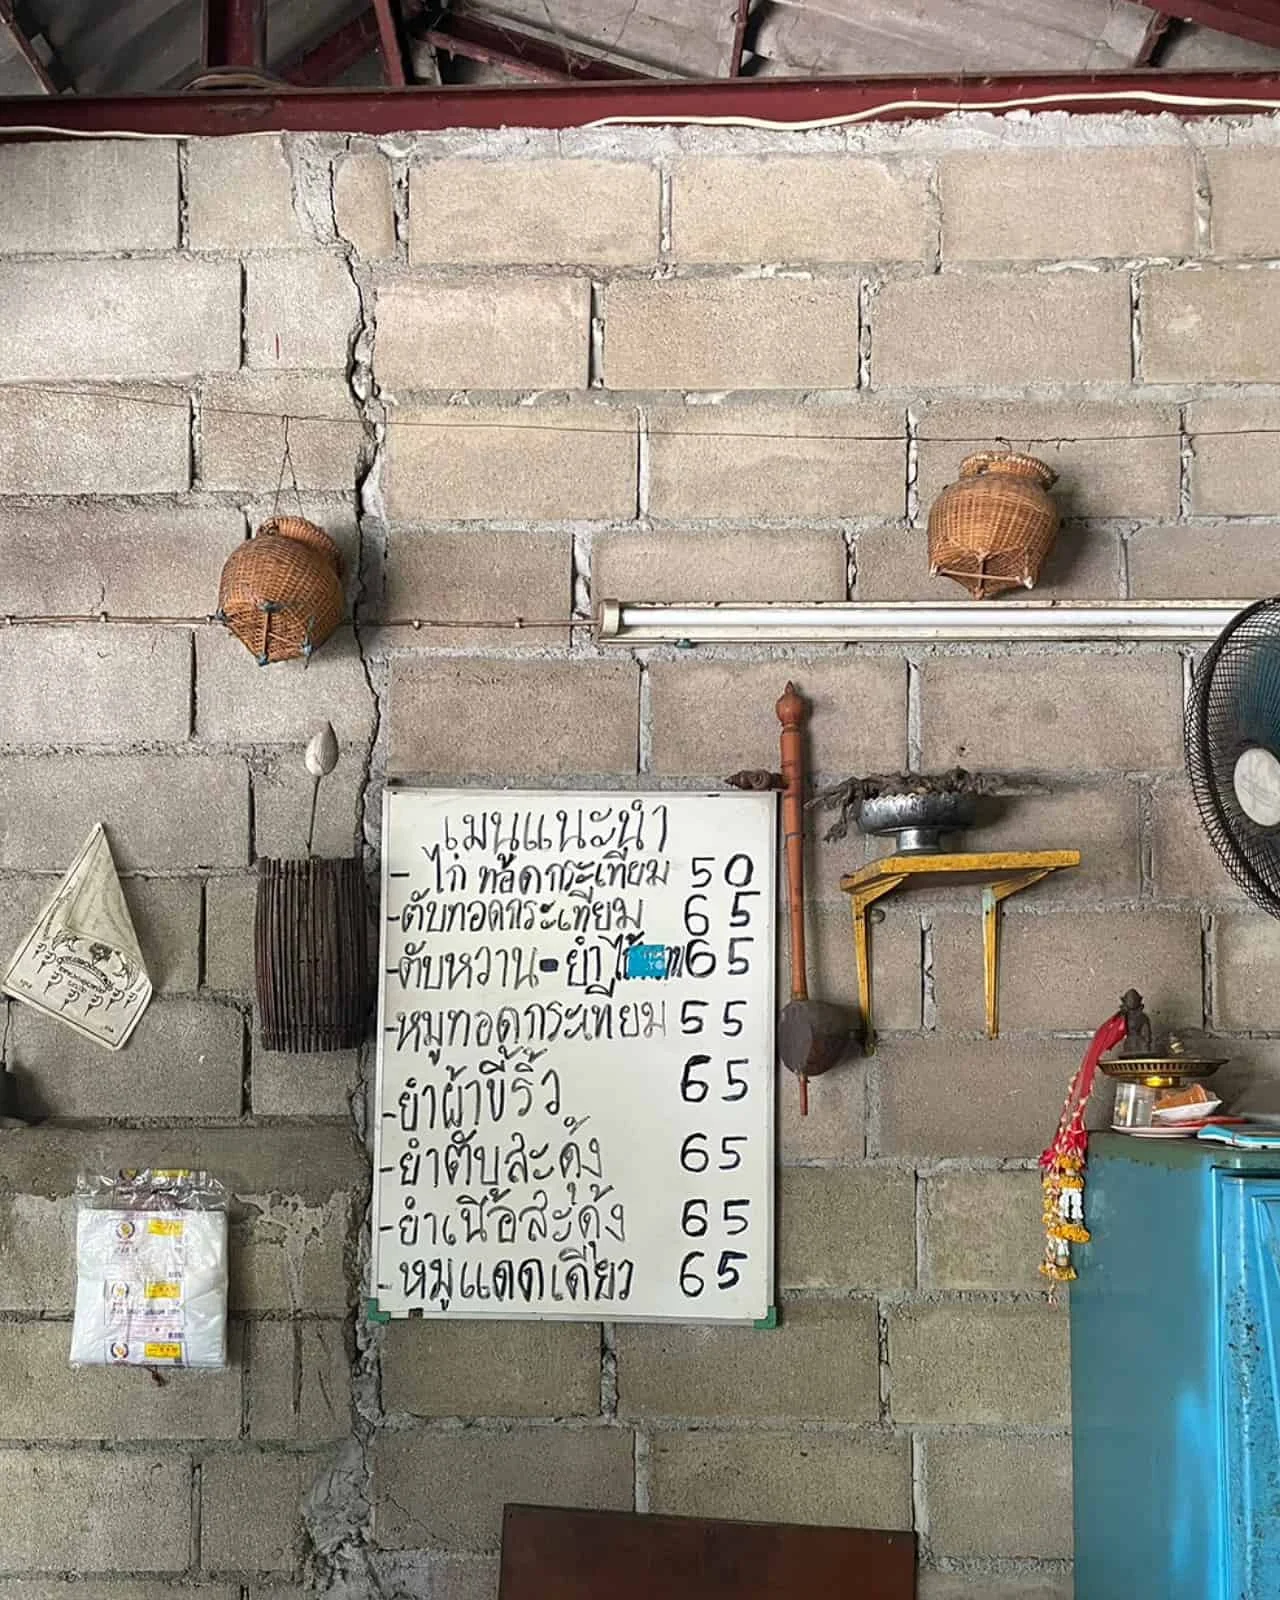 เมนูแนะนำ
- ไก่ทอดกระเทียม 50
- ตับทอดกระเทียม 65
- ตับหวาน - ยำ 65
- หมูทอดกระเทียม 55
- ยำผ้าขี้ริ้ว 65
- ยำตับสะดุ้ง 65
- ยำเนื้อสะดุ้ง 65
- หมูแดดเดียว 65